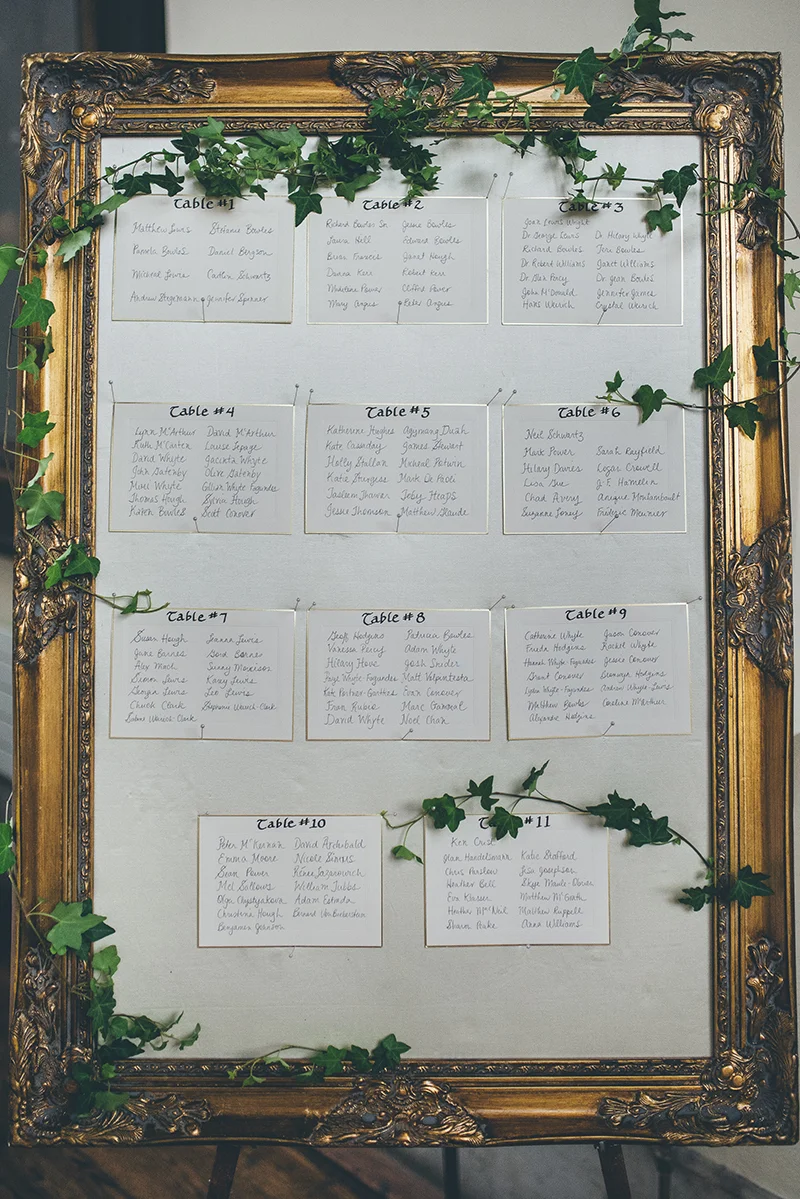 Table #1
Matthew Lewis Stefanie Bowles
Pamela Bowles Daniel Bergson
Micheal Lewis Caitlin Schwartz
Andrew Stegemann Jennifer Spinner
Table #2
Richard Bowles Sr. Bowles
Laura Hell Edward Bowles
Brian Janet Keugh
Donna Kerr Robert Kerr
Madelene Power Clifford Power
Mary Angus Peter Angus
Table #3
Joan Lewis Wright
Dr George Lewis Dr Hilary Whyte
Richard Bowles Teri Bowles
Dr Robert Williams Janet Williams
Dr Percy Dr Jean Bowles
John McDonald Jennifer James
Hans Weirich Crystal Weirich
Table #4
Lynn McArthur David McArthur
Ruth McCarten Louise Lepage
David Whyte Jacinta Whyte
John Gatenby Olive Gatenby
Mimi Whyte Gillian Whyte Fagundes
Thomas Hough Sylvia Hough
Karen Bowles Scott Conover
Table #5
Katherine Hughes Agyemang Duah
Kate Cassaday James Stewart
Holly Stallan Micheal Potwin
Katie Sturgess Mark De Paoli
Tasleem Thawer Toby Heaps
Jessie Thomson Matthew Glaude
Table #6
Neil Schwartz
Mark Power Sarah Rayfield
Hilary Davies Logan Crowell
Lisa J.F. Hamelin
Chad Avery Anique Montambault
Suzanne Frederic Meunier
Table #7
Susan Hough Joanna Lewis
June Barnes Gord Barnes
Alex Mach Sunny Morrison
Simon Lewis Kasey Lewis
Lewis Leo Lewis
Chuck Clark Stephanie Weirich-Clark
Sabine Weirich-Clark
Table #8
Geoff Hodgins Patricia Bowles
Vanessa Percy Adam Whyte
Hilary Hove Josh Snider
Paige Whyte Fagundes Matt Valpentesta
Kate Partner-Gonthier Evan Conover
Fran Rubio Marc Gammal
David Whyte Noel Chan
Table #9
Catherine Whyte Jason Conover
Frieda Hodgins Rachel Whyte
Hannah Whyte-Fagundes Jesse Conover
Grant Conover Bronwyn Hodgins
Lydia Whyte-Fagundes Andrew Whyte-Lewis
Matthew Bowles Caroline McArthur
Alexandra Hodgins
Table #10
Peter McKernan David Archibald
Emma Moore Nicole Simms
Sean Power Renee Lazarowich
Mel Sallows William Tubbs
Olga Chystyakova Adam Estrada
Christine Hough Bernard VonBieberstein
Benjamin
Table #11
Ken Crust
Jian Handelsmann Katie Stafford
Chris Parslow Lisa Josephson
Heather Bell Skye
Eva Klasser Matthew McGrath
Heather McNeil Matthew Ruppell
Sharon Peake Anna Williams